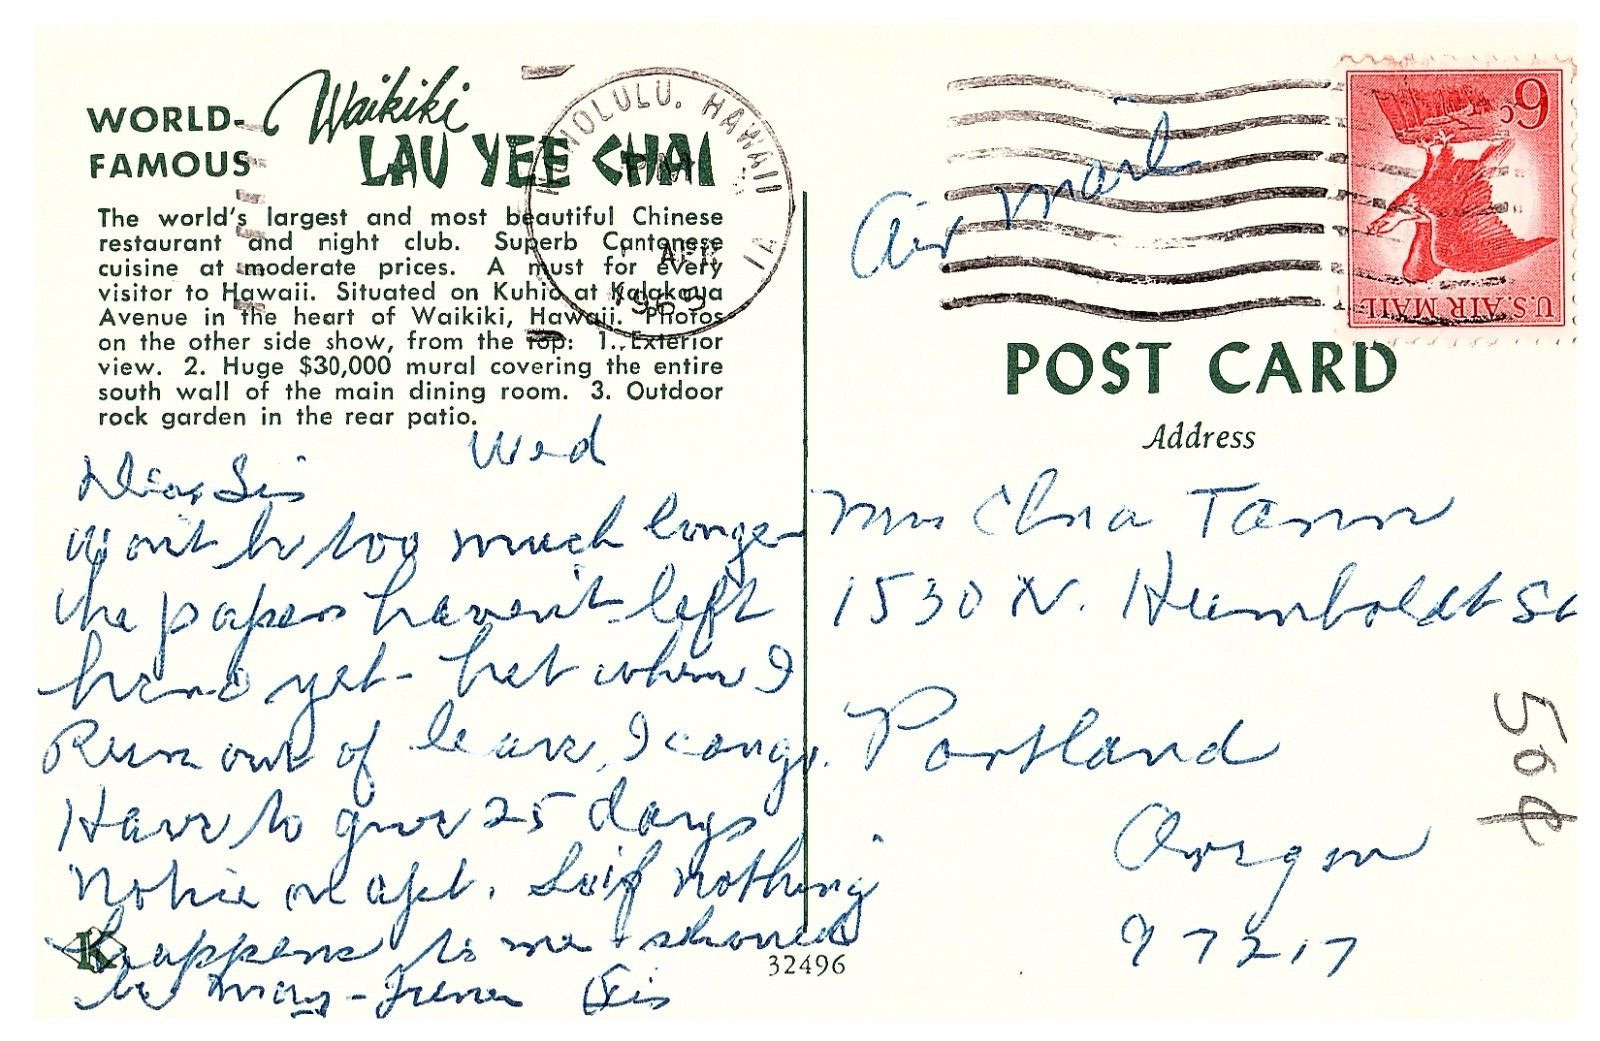 WORLD-
FAMOUS
Waikiki
LAU YEE CHAI
The world's largest and most beautiful Chinese
restaurant and night club. Superb Cantonese
cuisine at moderate prices. A must for every
visitor to Hawaii. Situated on Kuhio at Kalakaua
Avenue in the heart of Waikiki, Hawaii. Photos
on the other side show, from the top: 1. Exterior
view. 2. Huge $30,000 mural covering the entire
south wall of the main dining room. 3. Outdoor
rock garden in the rear patio.
Wed
Dear Sis
Won't be too much longer
the papers haven't left
here yet - but when I
Run out of leave, I can go.
Have to give 25 days
Notice on apt. So if nothing
happens to me - should
be May - June Sis
K
32496
HONOLULU, HAWAII
PM
APR
Air Mail
6c
U.S. AIR MAIL
POST CARD
Address
Mrs Elna Tamm
1530 N. Humboldt St
Portland
Oregon
97217
50¢